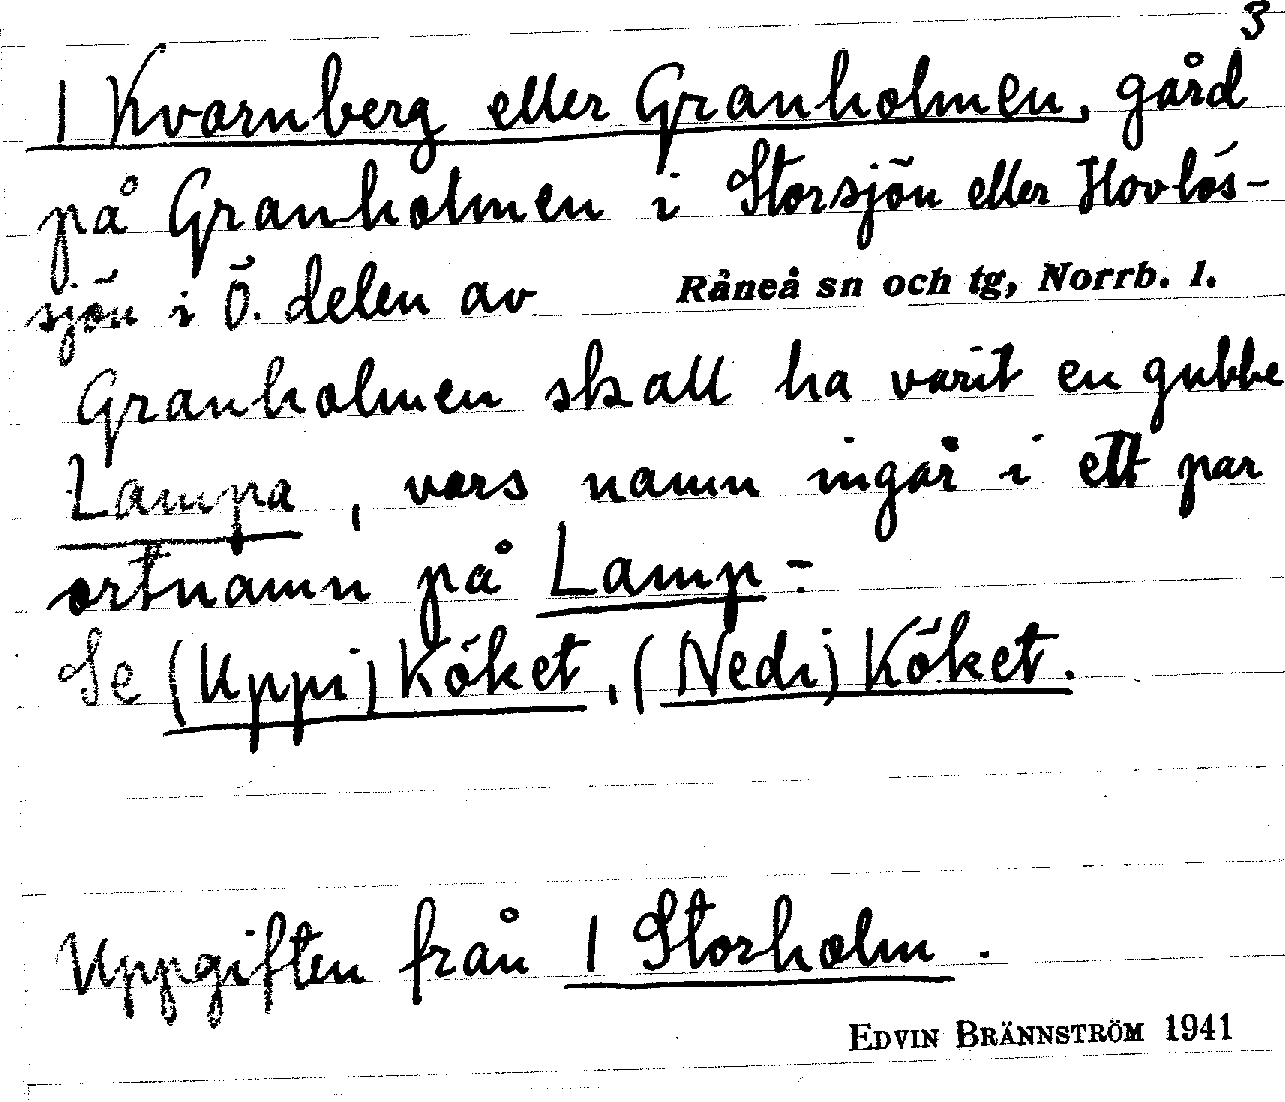 3
1 Kvarnberg eller Granholmen, gård
på Granholmen i Storsjön eller Hovlös-
sjön i Ö. delen av Råneå sn och tg, Norrb. l.
Granholmen skall ha varit en gubbe
Lampa, vars namn ingår i ett par
ortnamn på Lamp-:
Se (Uppi) Köket, (Nedi) Köket.
Uppgiften från 1 Storholm.
EDVIN BRÄNNSTRÖM 1941